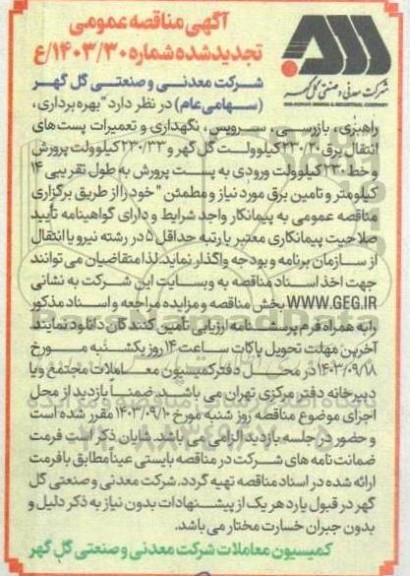 آگهی مناقصه عمومی
تجدیدشده شماره ۱۴۰۳/۳۰/ع
شرکت معدنی و صنعتی گل گهر
شرکت معدنی و صنعتی گل گهر
GOL-GOHAR MINING & INDUSTRIAL COMPANY
(سهامی عام) در نظر دارد "بهره برداری،
راهبری، بازرسی، سرویس، نگهداری و تعمیرات پست های
انتقال برق ۲۳۰/۲۰ کیلوولت گل گهر و ۲۳۰/۳۳ کیلوولت پرورش
و خط ۲۳۰ کیلوولت ورودی به پست پرورش به طول تقریبی ۱۴
کیلومتر و تامین برق مورد نیاز و مطمئن" خود را از طریق برگزاری
مناقصه عمومی به پیمانکار واجد شرایط و دارای گواهینامه تأیید
صلاحیت پیمانکاری معتبر با رتبه حداقل ۵ در رشته نیرو یا انتقال
از سازمان برنامه و بودجه واگذار نماید. لذا متقاضیان می توانند
جهت اخذ اسناد مناقصه به وبسایت این شرکت به نشانی
WWW.GEG.IR بخش مناقصه و مزایده مراجعه و اسناد مذکور
را به همراه فرم پرسشنامه ارزیابی تأمین کنندگان دانلود نمایند.
آخرین مهلت تحویل پاکات ساعت ۱۴ روز یکشنبه مورخ
۱۴۰۳/۰۹/۱۸ در محل دفتر کمیسیون معاملات مجتمع و یا
دبیرخانه دفتر مرکزی تهران می باشد. ضمناً بازدید از محل
اجرای موضوع مناقصه روز شنبه مورخ ۱۴۰۳/۰۹/۱۰ مقرر شده است
و حضور در جلسه بازدید الزامی می باشد. شایان ذکر است فرمت
ضمانت نامه های شرکت در مناقصه بایستی عیناً مطابق با فرمت
ارائه شده در اسناد مناقصه تهیه گردد. شرکت معدنی و صنعتی گل
گهر در قبول یا رد هر یک از پیشنهادات بدون نیاز به ذکر دلیل و
بدون جبران خسارت مختار می باشد.
کمیسیون معاملات شرکت معدنی و صنعتی گل گهر